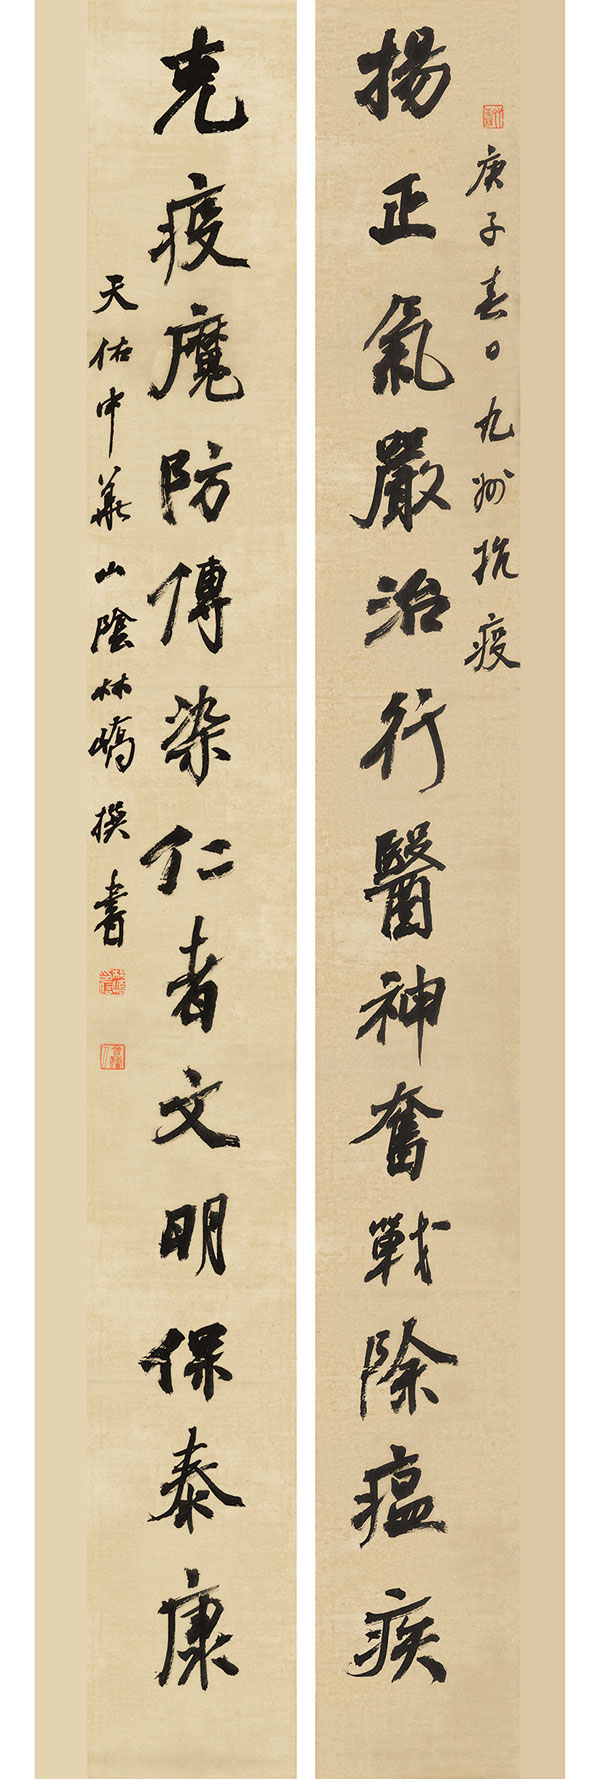 庚子春日九州抗疫
揚正氣嚴治行醫神奮戰除瘟疾
克疫魔防傳染仁者文明保泰康
天佑中華山陰林嶠撰書